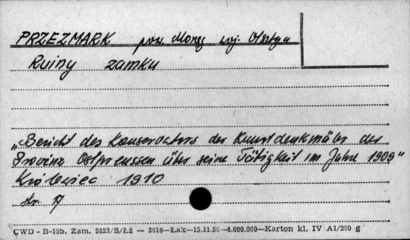 PRZEZMARK pow. Morąg woj. Olsztyn
Ruiny zamku
„Bericht des Konservators der Kunstdenkmäler der
Provinz Ostpreussen über seine Tätigkeit im Jahre 1909"
Królewiec 1910
str. 7
CWD - B-10b. Zam. 5823/S/Łż — 2616—Łak—15.11.56—6.000.000—Karton kl. IV A1/200 g